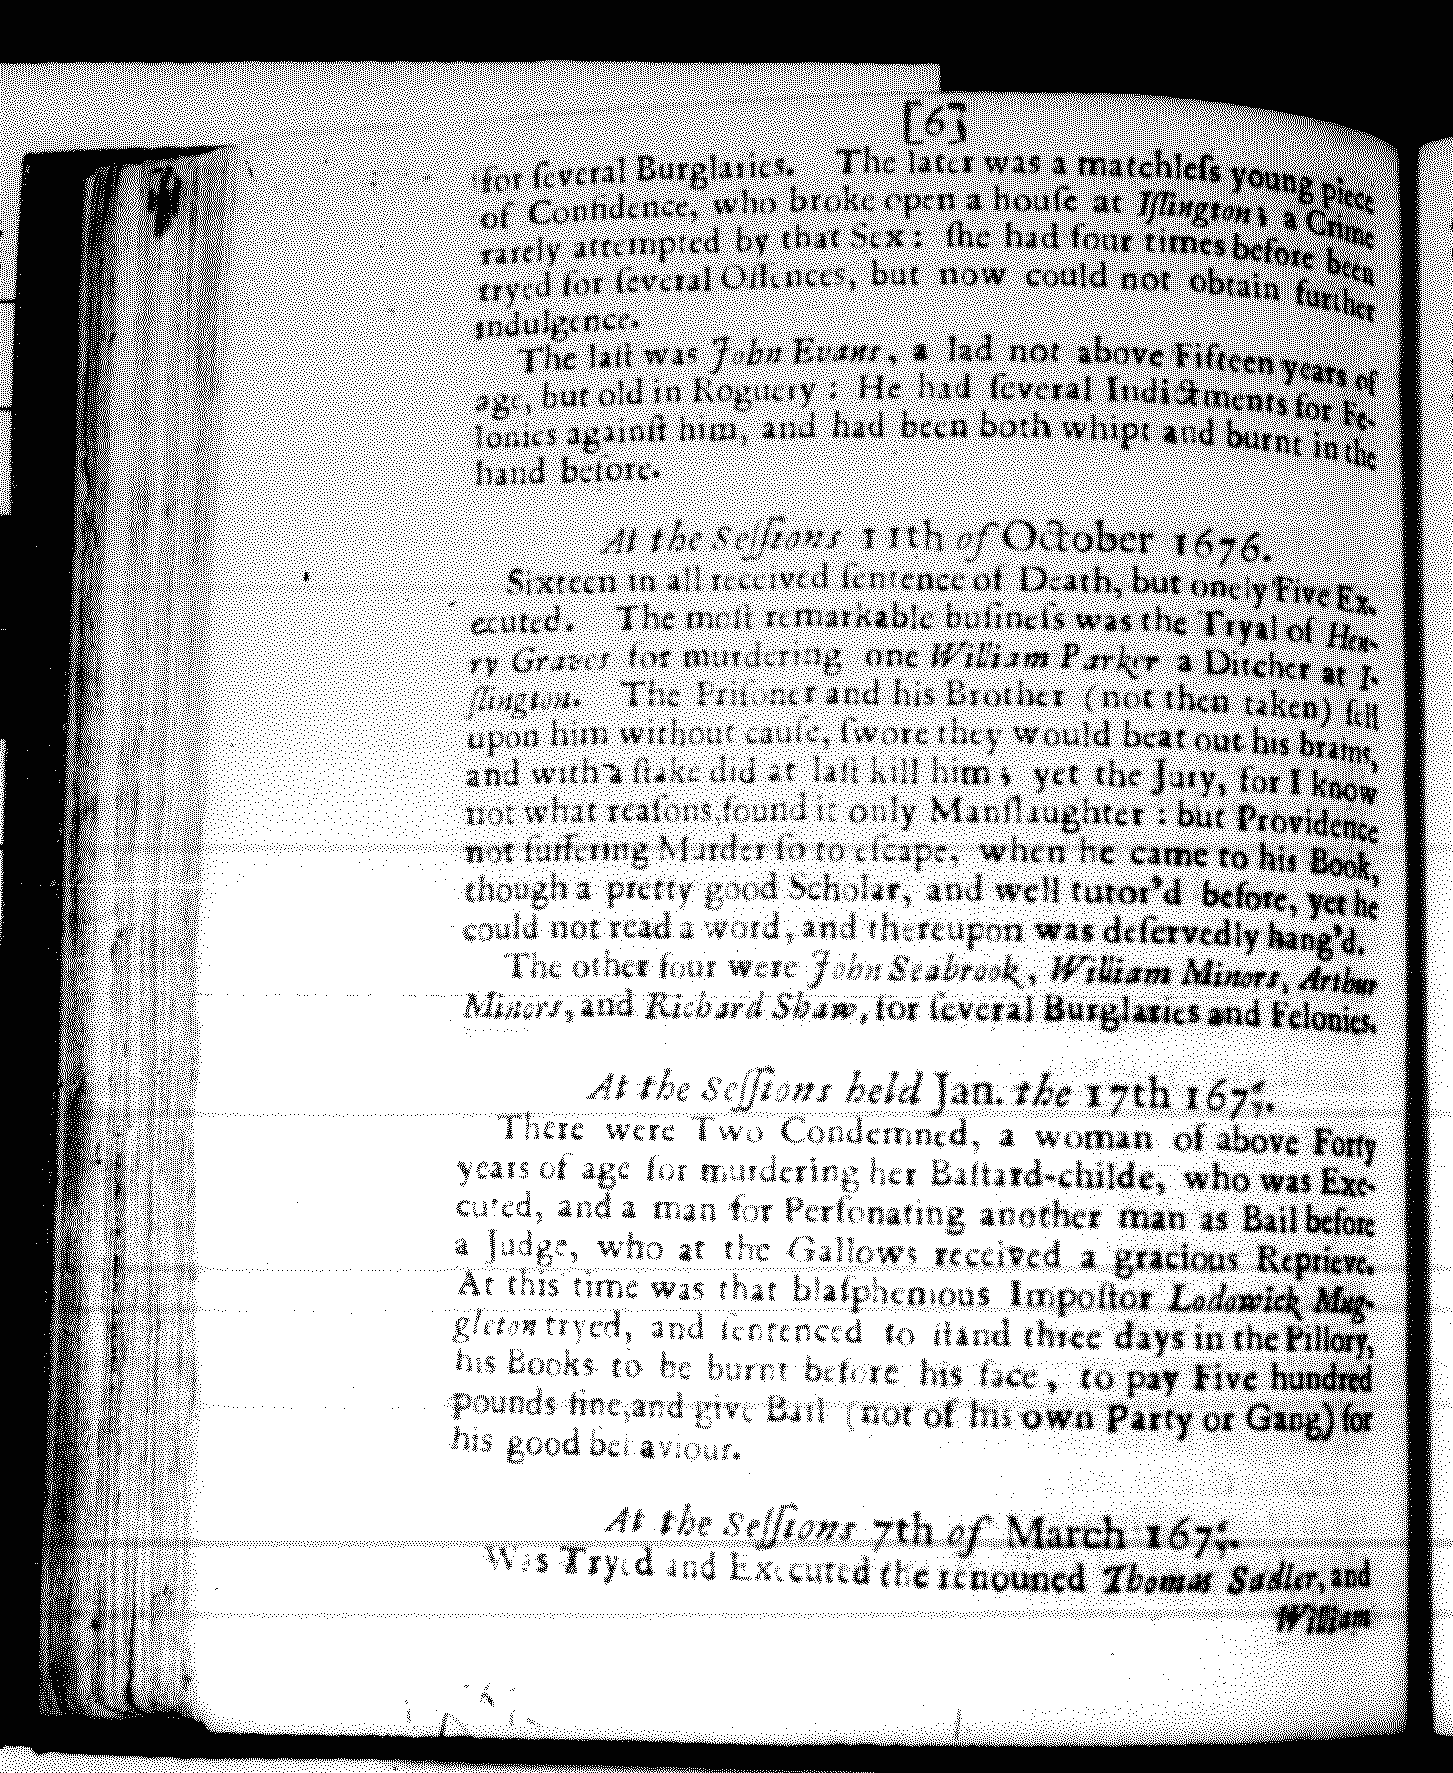 [6]
for ſeveral Burglaries. The later was a matchleſs young piece
of Confidence, who broke open a houſe at Iſlington; a Crime
rarely attempted by that Sex: ſhe had four times before been
tryed for ſeveral Offences, but now could not obtain further
indulgence.
The laſt was John Evans, a lad not above Fifteen years of
age, but old in Roguery: He had ſeveral Indictments for Fe-
lonies againſt him, and had been both whipt and burnt in the
hand before.
At the Seſſions 11th of October 1676.
Sixteen in all received ſentence of Death, but onely Five Ex-
ecuted. The moſt remarkable buſineſs was the Tryal of Hen-
ry Graver for murdering one William Parker a Ditcher at I-
ſlington. The Priſoner and his Brother (not then taken) fell
upon him without cauſe, ſwore they would beat out his brains,
and with a ſtake did at laſt kill him; yet the Jury, for I know
not what reaſons, found it only Manſlaughter: but Providence
not ſuffering Murder ſo to eſcape, when he came to his Book,
though a pretty good Scholar, and well tutor'd before, yet he
could not read a word, and thereupon was deſervedly hang'd.
The other four were John Seabrook, William Minors, Arthur
Minors, and Richard Shaw, for ſeveral Burglaries and Felonies.
At the Seſſions held Jan. the 17th 167 6/7.
There were Two Condemned, a woman of above Forty
years of age for murdering her Baſtard-childe, who was Exe-
cuted, and a man for Perſonating another man as Bail before
a Judge, who at the Gallows received a gracious Reprieve.
At this time was that blaſphemous Impoſtor Lodowick Mug-
gleton tryed, and ſentenced to ſtand three days in the Pillory,
his Books to be burnt before his face, to pay Five hundred
pounds fine, and give Bail (not of his own Party or Gang) for
his good behaviour.
At the Seſſions 7th of March 167 6/7.
Was Tryed and Executed the renouned Thomas Sadler, and
William